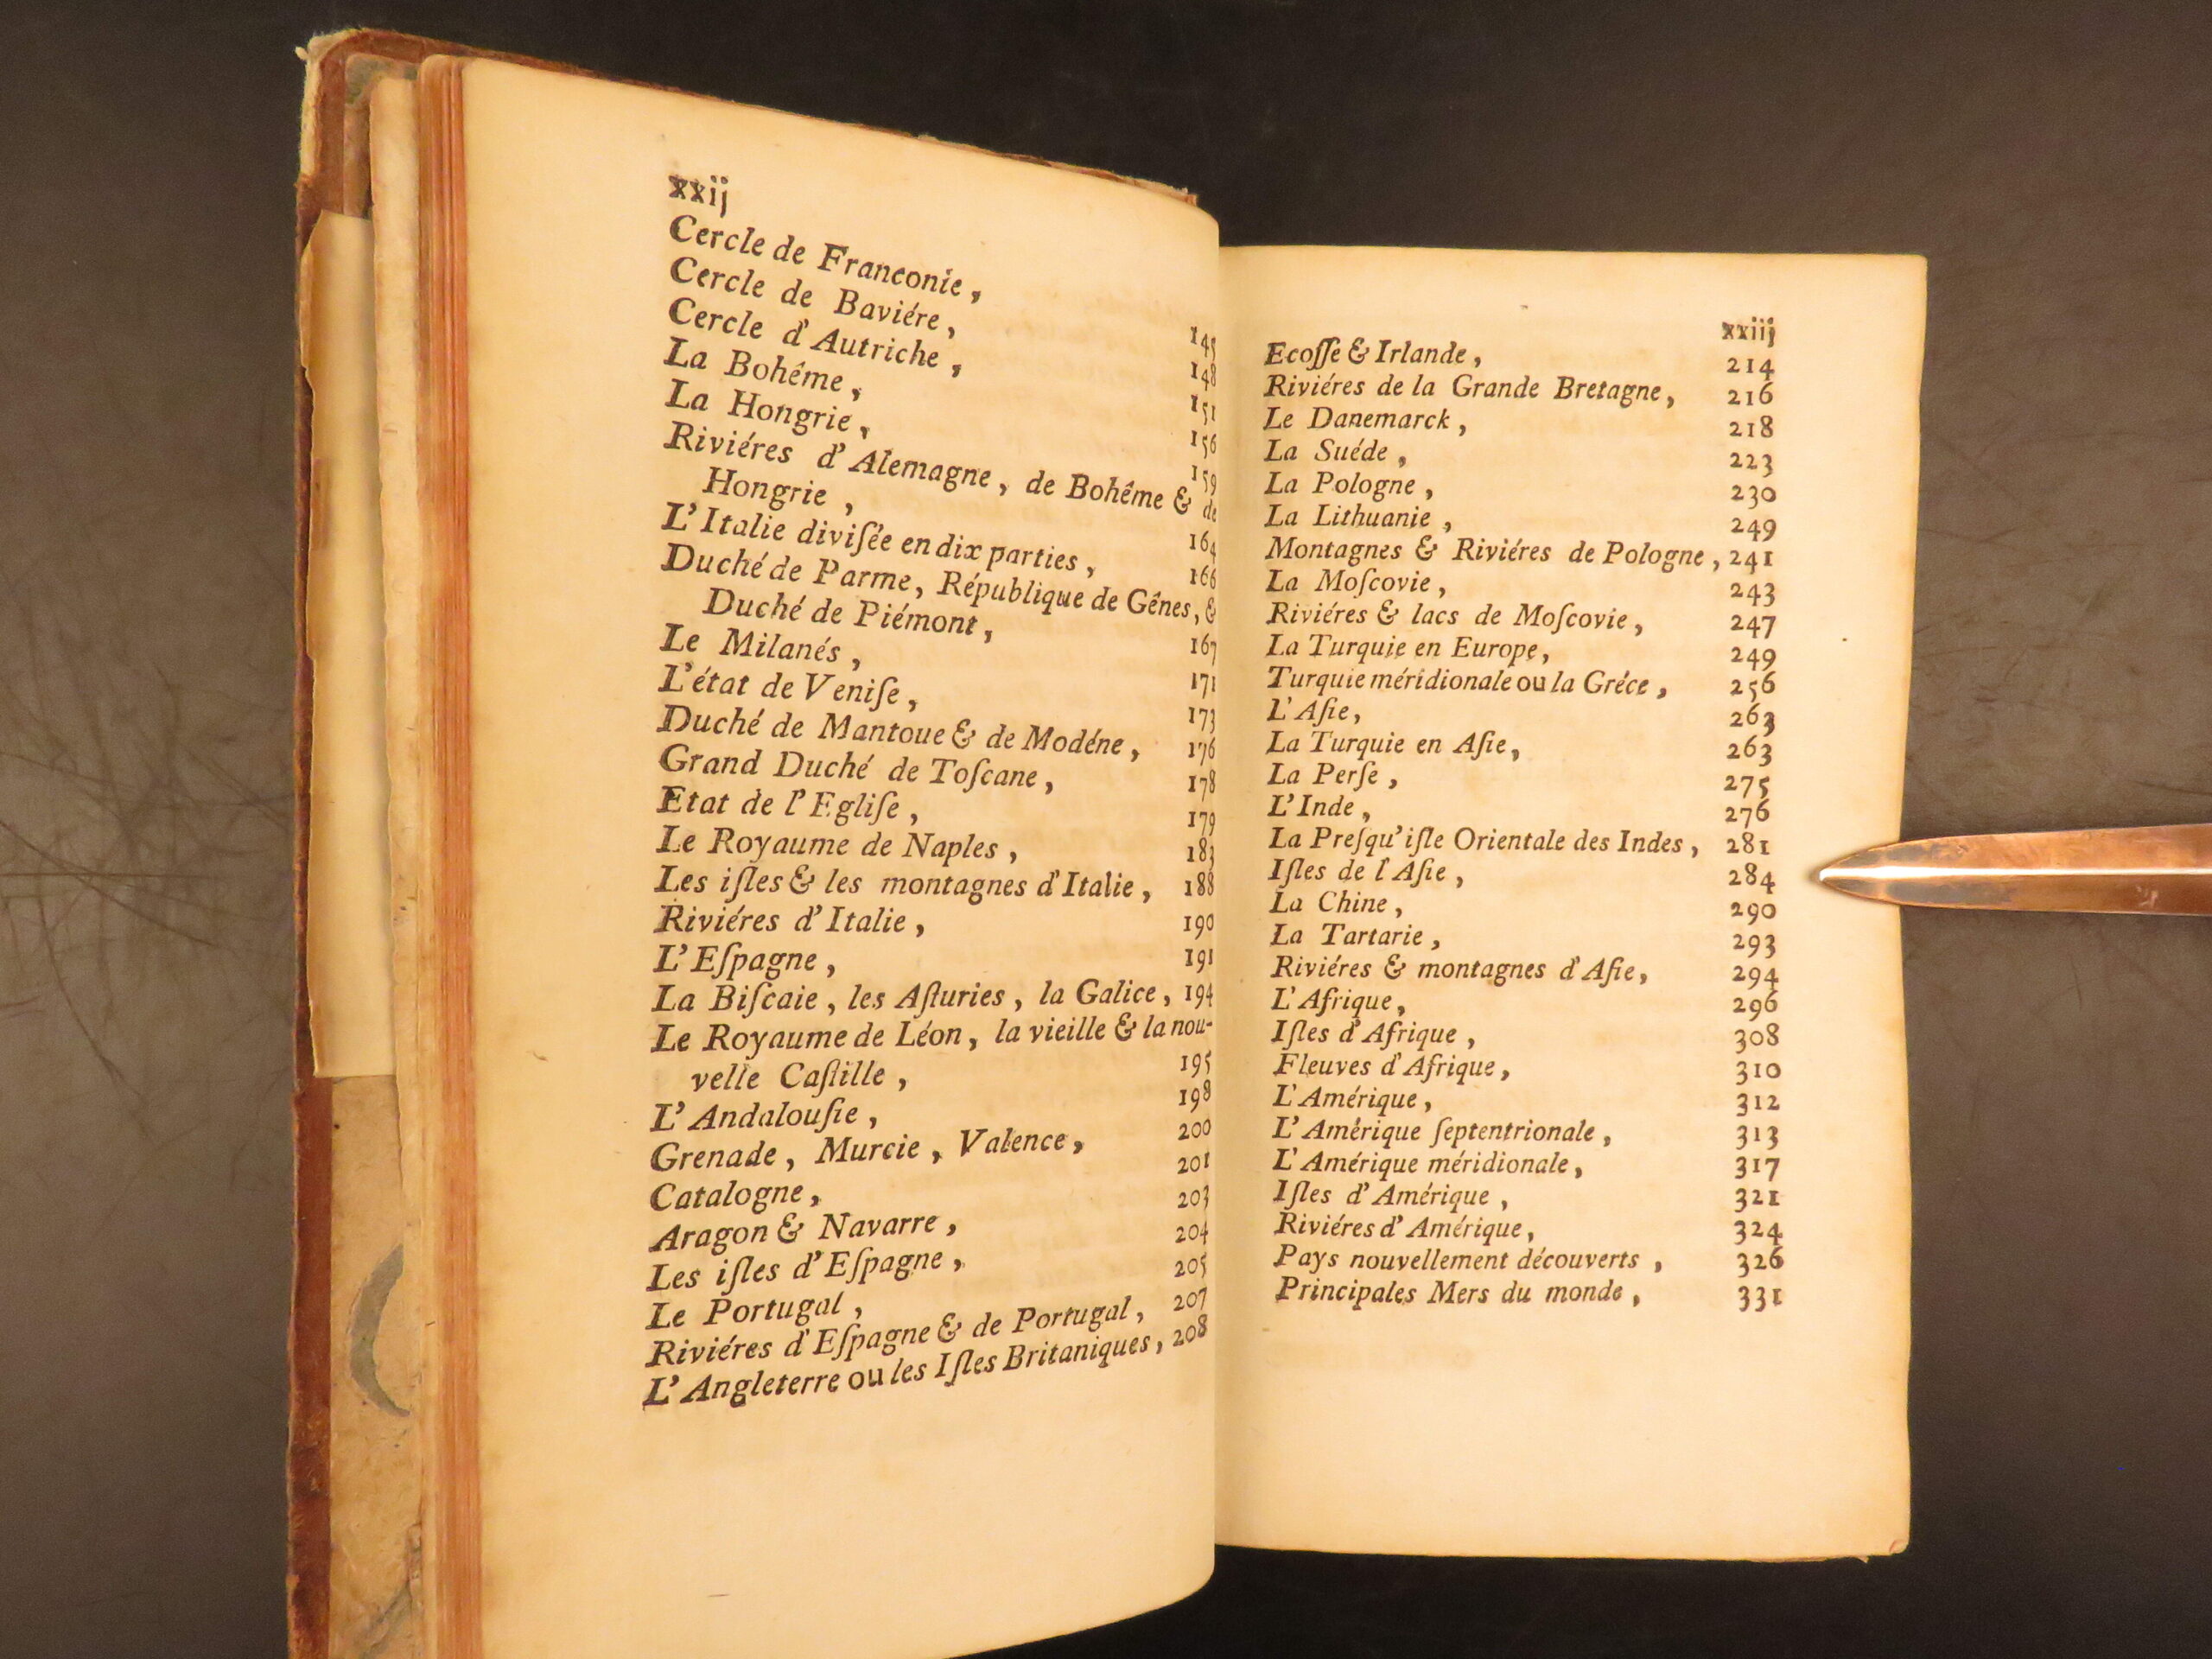 xxij
Cercle de Franconie, 145
Cercle de Baviére, 148
Cercle d'Autriche, 151
La Bohême, 156
La Hongrie, 159
Riviéres d'Alemagne, de Bohême & de
Hongrie, 164
L'Italie diviſée en dix parties, 166
Duché de Parme, République de Gênes, &
Duché de Piémont, 167
Le Milanés, 171
L'état de Veniſe, 173
Duché de Mantoue & de Modéne, 176
Grand Duché de Toſcane, 178
Etat de l'Egliſe, 179
Le Royaume de Naples, 183
Les iſles & les montagnes d'Italie, 188
Riviéres d'Italie, 190
L'Eſpagne, 191
La Biſcaie, les Aſturies, la Galice, 194
Le Royaume de Léon, la vieille & la nou-
velle Caſtille, 195
L'Andalouſie, 198
Grenade, Murcie, Valence, 200
Catalogne, 201
Aragon & Navarre, 203
Les iſles d'Eſpagne, 204
Le Portugal, 205
Riviéres d'Eſpagne & de Portugal, 207
L'Angleterre ou les Iſles Britaniques, 208
xxiij
Ecoſſe & Irlande, 214
Riviéres de la Grande Bretagne, 216
Le Danemarck, 218
La Suéde, 223
La Pologne, 230
La Lithuanie, 249
Montagnes & Riviéres de Pologne, 241
La Moſcovie, 243
Riviéres & lacs de Moſcovie, 247
La Turquie en Europe, 249
Turquie méridionale ou la Gréce, 256
L'Aſie, 263
La Turquie en Aſie, 263
La Perſe, 275
L'Inde, 276
La Preſqu'iſle Orientale des Indes, 281
Iſles de l'Aſie, 284
La Chine, 290
La Tartarie, 293
Riviéres & montagnes d'Aſie, 294
L'Afrique, 296
Iſles d'Afrique, 308
Fleuves d'Afrique, 310
L'Amérique, 312
L'Amérique ſeptentrionale, 313
L'Amérique méridionale, 317
Iſles d'Amérique, 321
Riviéres d'Amérique, 324
Pays nouvellement découverts, 326
Principales Mers du monde, 331